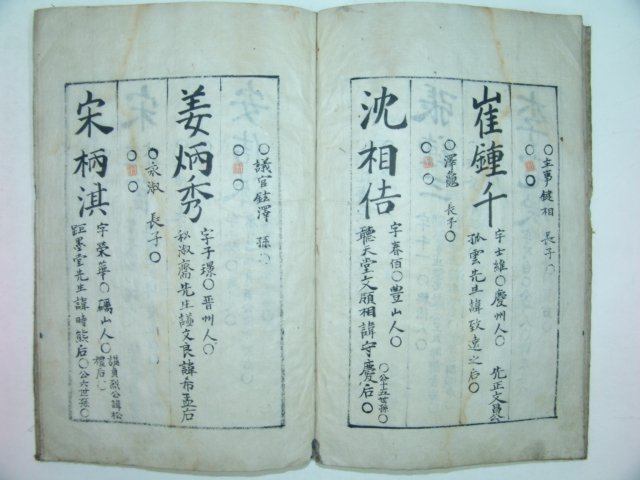 ○主事健相 長子○
○
崔鍾千
字士維○慶州人○ 先正文昌公
孤雲先生諱致遠之后○
○澤龜 長子○
○
沈相佶
字春佰○豊山人○
聽天堂文願相諱守慶后○
○公十五世孫○
○議官鉉澤 孫○
○
姜炳秀
字子璟○晋州人○
私淑齋先生謚文良諱希孟后
○永淑 長子○
○
宋柄淇
字榮華○礪山人○
距墨堂先生諱時熊后○公六世孫○
謚貞烈公諱松禮后○